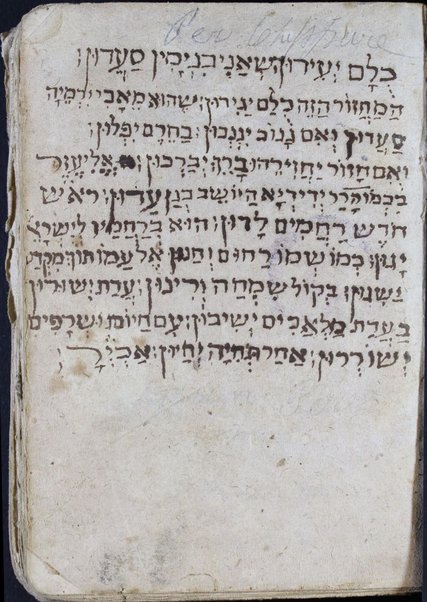 Per Chippure
כֻּלָם יַעִירוּן שֶׁאֲנִי בְּנְיָמִין סַעֲדוּן׃
הַמַחֲזוֹר הַזֶה כֻלָם יַגִידוּן׃ שֶׁהוּא מֵאָבִי יִרְמִיָה
סַעֲדוּן וְאִם גָנוֹב יִגָנְבוּן׃ בַּחֵרֶם יִפְּלוּן׃
וְאִם חֲזוֹר יַחֲזִירֵהוּ בָּרֵךְ יְבָרְכוּן׃ אֱלִיעֶזֶר
בִּכְמוֹהָרַר יְדִידְיָא הַיוֹשֵׁב בְּגַן עֵדוּן׃ רֹאשׁ
חֹדֶשׁ רַחֲמִים לָדוּן׃ הוּא בְרַחֲמָיו לְיִשְׂרָאֵ
יָגוֹן׃ כְּמוֹ שְׁמוֹ רַחוּם וְחַנוּן אֶל עַמוֹ תוֹךְ מִקְדָּ
בְּשִׂמְחָה וְרִינוּן׃ עֲדַת יְשׁוּרוּן
בַּעֲדַת מַלְאָכִים יְשִׁיבוּן׃ עִם חַיוֹת וּשְׂרָפִים
יְשׁוֹרְרוּן׃ אַחַר תְּחִיָה יִחְיוּן׃ אַכִי״ר׃